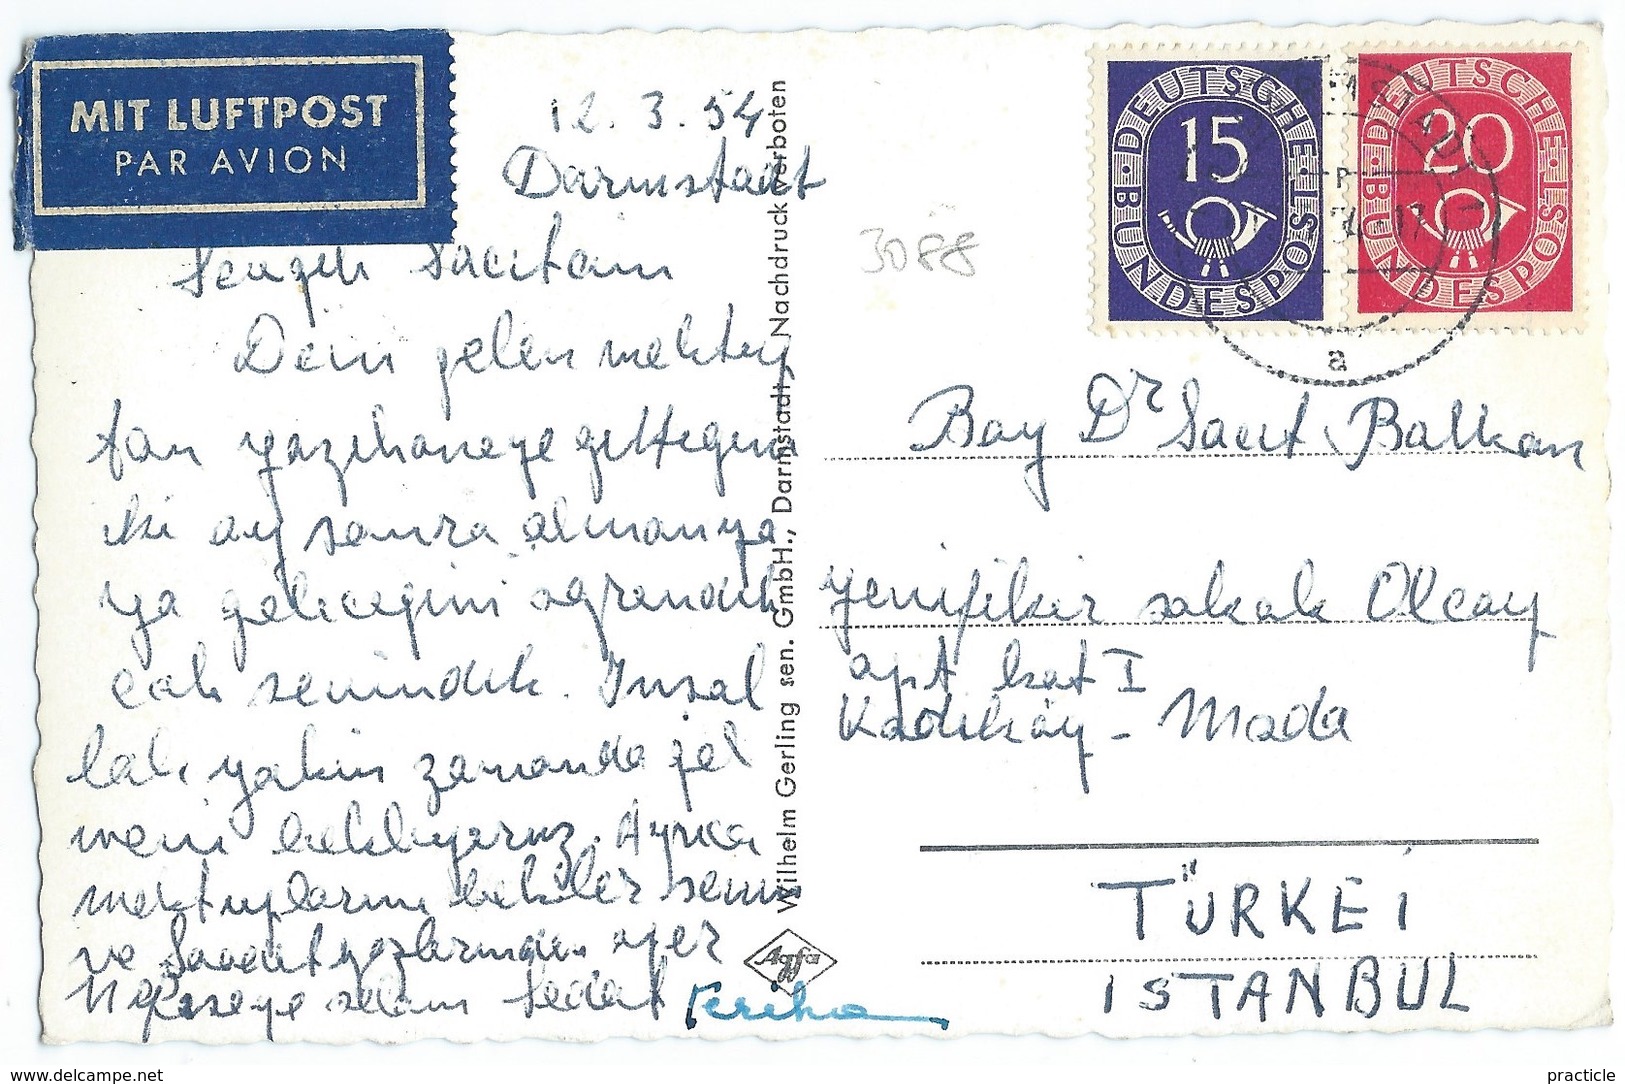 MIT LUFTPOST
PAR AVION
12. 3. 54
Darmstadt
Sacitam
Dein gelen mektup
tan yazıhaneye gittiğini
iki ay sonra almanya
ya geleceğini ögrendik
çok sevindik. Insal
lah yakın zamanda gel
meni bekliyoruz. Ayrıca
mektuplarını bekler seni
ve Saadet gozlerinden oper
selam Sedat
Wilhelm Gerling sen. GmbH., Darmstadt / Nachdruck verboten
Agfa
3088
DEUTSCHE BUNDESPOST
15
DEUTSCHE BUNDESPOST
20
a
Bay Dr Sacit Balkan
Yenifikir sokak Olcay
apt kat I
Kadıköy - Moda
TÜRKEİ
İSTANBUL
www.delcampe.net
practicle